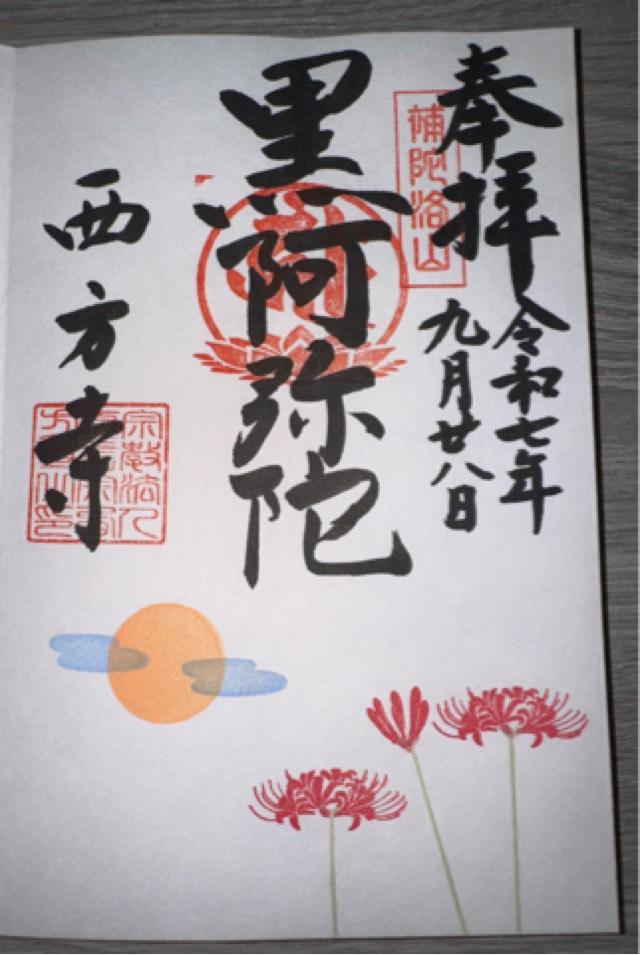 奉拝
補陀洛山
令和七年
九月廿八日
黒阿弥陀
西方寺